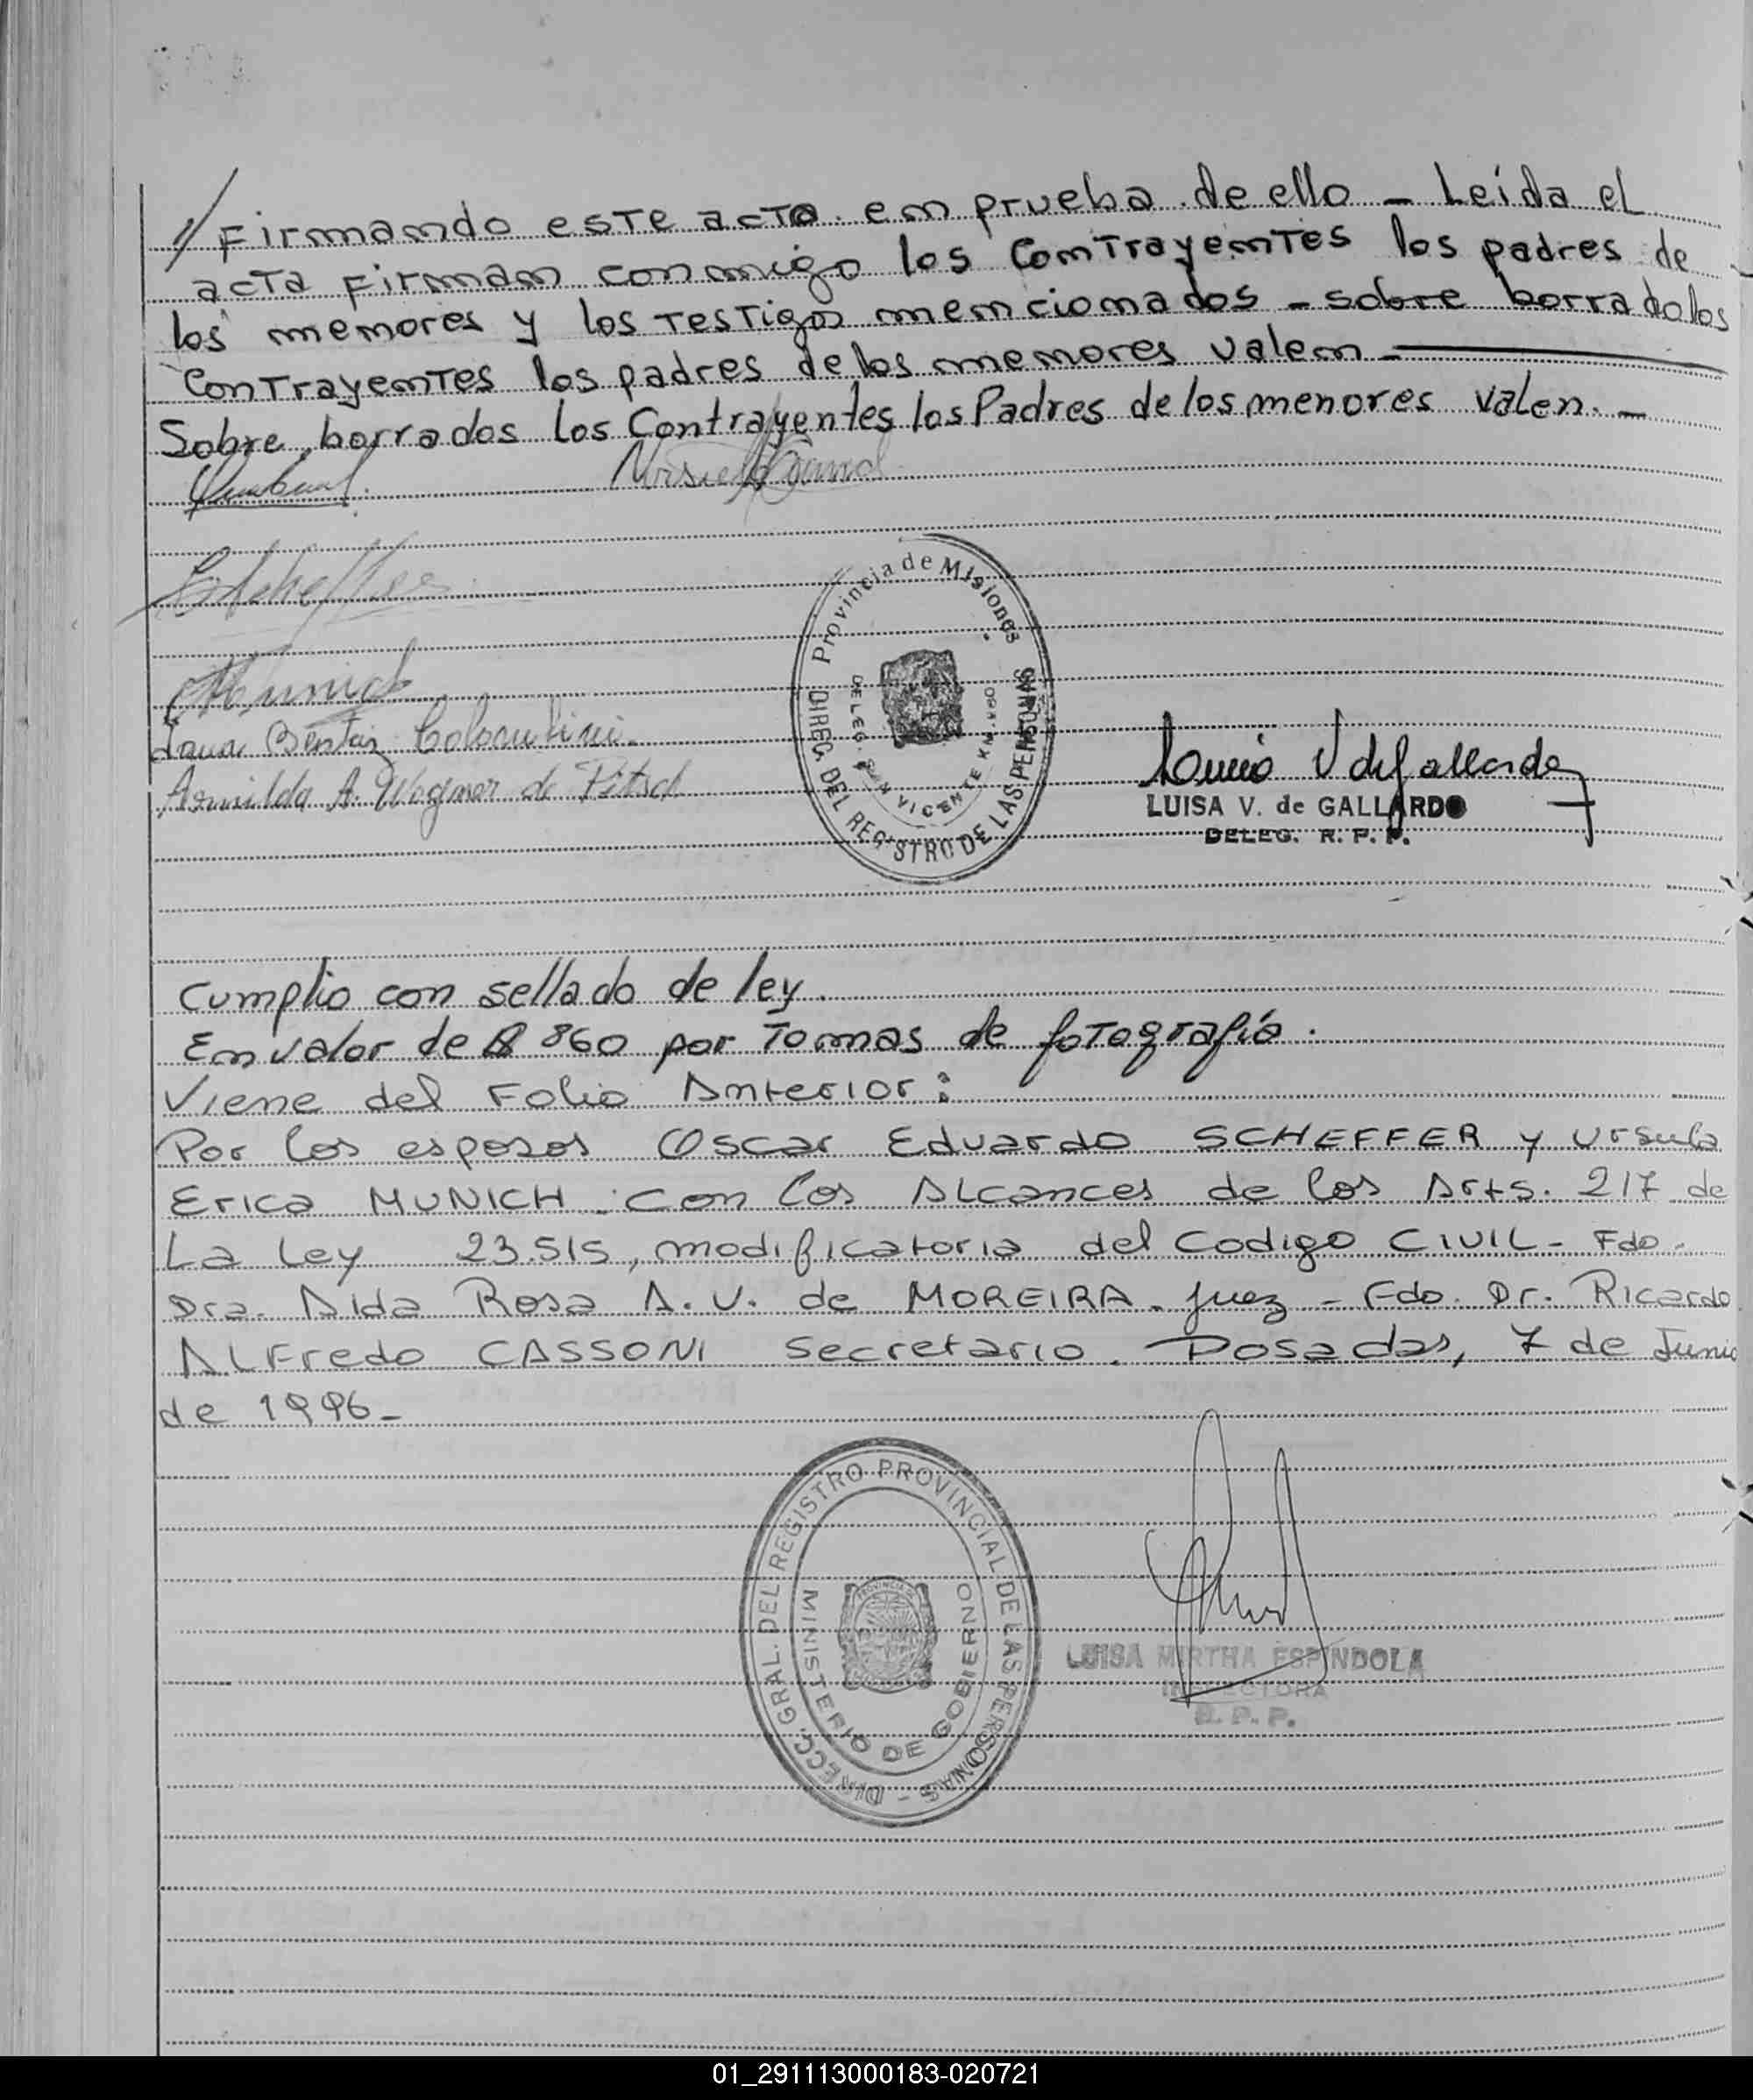 // Firmando este acto en prueba de ello - Leída el
acta firman conmigo los Contrayentes los padres de
los menores y los testigos mencionados - sobre borrado los
Contrayentes los padres de los menores valen -
Sobre borrados los Contrayentes los Padres de los menores valen. -
Scheffer
Munich
Armilda A. Wagner de Pitsch
Provincia de Misiones
DIREC. DEL REGISTRO DE LAS PERSONAS
DELEG. SAN VICENTE KM.
LUISA V. de GALLARDO
DELEG. R. P. P.
Cumplio con sellado de ley.
En valor de ₳ 860 por Tomas de fotografía.
Viene del Folio Anterior:
Por los esposos Oscar Eduardo SCHEFFER y Ursula
Erica MUNICH. Con los Alcances de los Arts. 217 de
La Ley 23.515, modificatoria del Codigo CIVIL - Fdo.
Dra. Aida Rosa A. V. de MOREIRA. Juez - Fdo. Dr. Ricardo
ALFredo CASSONI Secretario. Posadas, 7 de Junio
de 1996-
DIRECC. GRAL. DEL REGISTRO PROVINCIAL DE LAS PERSONAS -
MINISTERIO DE GOBIERNO
LUISA MIRTHA ESPINDOLA
INSPECTORA
R. P. P.
01_291113000183-020721